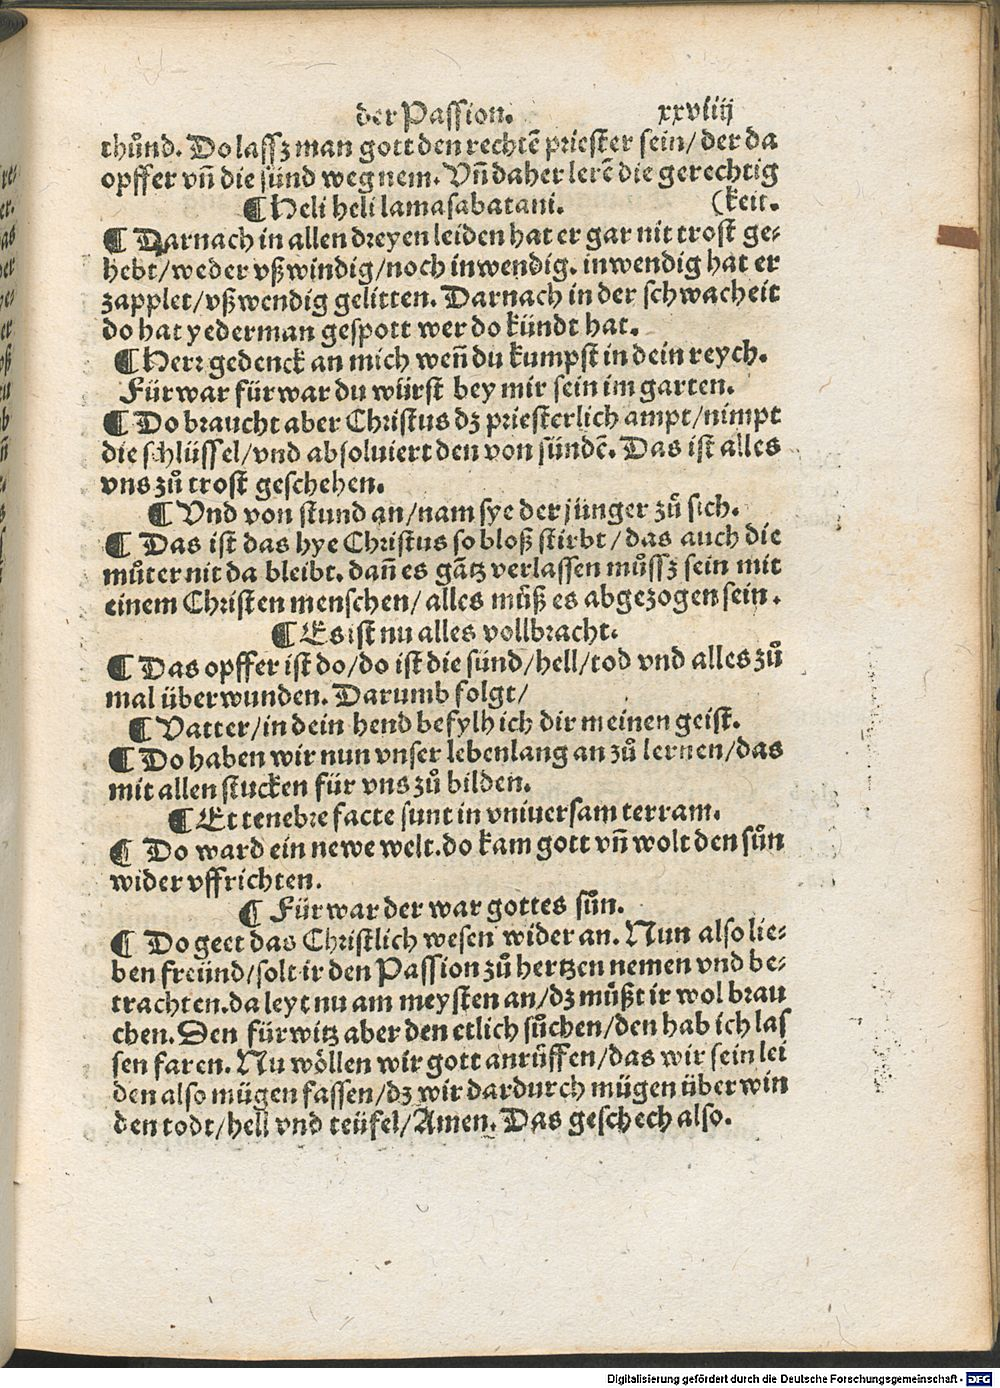 der Passion. xxviiij
thůnd. Do lassz man gott den rechtē priester sein/ der da
opffer vñ die sünd weg nem. Vñ daher lerē die gerechtig
¶ Heli heli lamasabatani. (keit.
¶ Darnach in allen dreyen leiden hat er gar nit trost ge⸗
hebt/weder vßwindig/noch inwendig. inwendig hat er
zapplet/vßwendig gelitten. Darnach in der schwacheit
do hat yederman gespott wer do kündt hat.
¶ Herr gedenck an mich weñ du kumpst in dein reych.
Fürwar fürwar du würst bey mir sein im garten.
¶ Do braucht aber Christus dz priesterlich ampt/nimpt
die schlüssel/vnd absoluiert den von sündē. Das ist alles
vns zů trost geschehen.
¶ Vnd von stund an/nam sye der jünger zů sich.
¶ Das ist das hye Christus so bloß stirbt/das auch die
můter nit da bleibt. dañ es gātz verlassen můssz sein mit
einem Christen menschen/ alles můß es abgezogen sein.
¶ Es ist nu alles vollbracht.
¶ Das opffer ist do/do ist die sünd/hell/tod vnd alles zů
mal überwunden. Darumb folgt/
¶ Vatter/in dein hend befylh ich dir meinen geist.
¶ Do haben wir nun vnser lebenlang an zů lernen/das
mit allen stucken für vns zů bilden.
¶ Et tenebre facte sunt in vniuersam terram.
¶ Do ward ein newe welt. do kam gott vñ wolt den sůn
wider vffrichten.
¶ Fürwar der war gottes sůn.
¶ Do geet das Christlich wesen wider an. Nun also lie⸗
ben freünd/solt ir den Passion zů hertzen nemen vnd be⸗
trachten. da leyt nu am meysten an/dz můßt ir wol brau
chen. Den fürwitz aber den etlich sůchen/den hab ich las
sen faren. Nu wöllen wir gott anrüffen/das wir sein lei
den also mügen fassen/dz wir dardurch mügen überwin
den todt/hell vnd teüfel/Amen. Das geschech also.
Digitalisierung gefördert durch die Deutsche Forschungsgemeinschaft - DFG